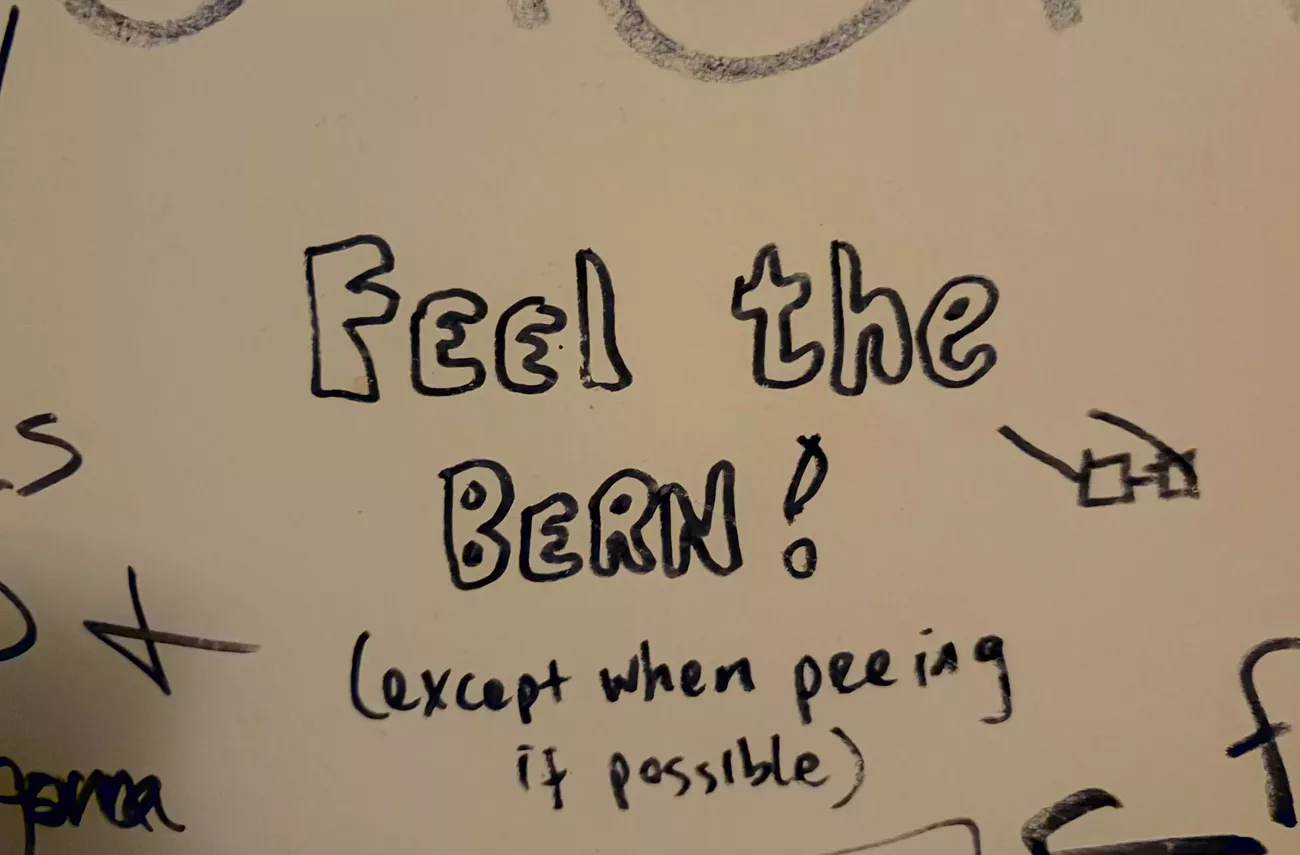 Feel the
BERN!
(except when peeing
if possible)